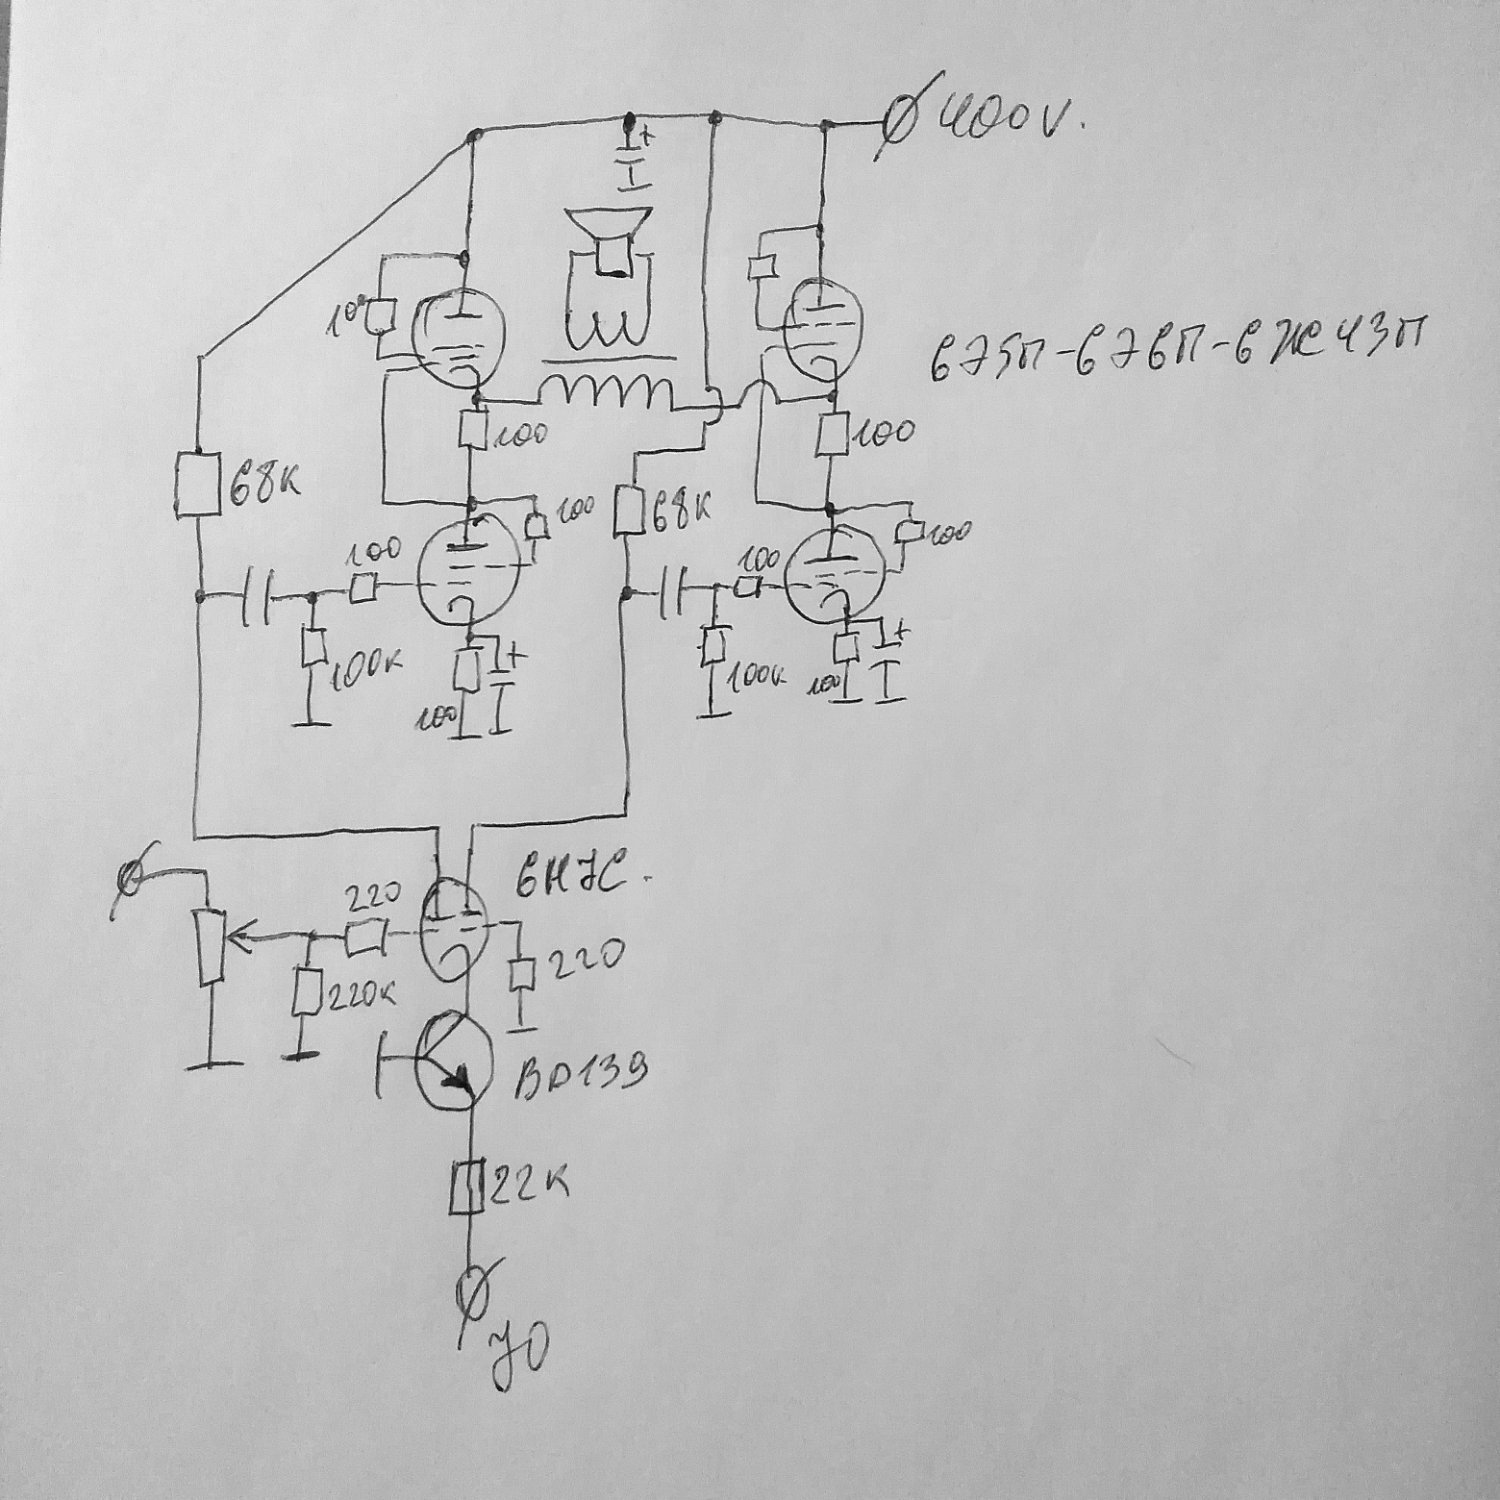 400V.
6Э5П-6Э6П-6Ж43П
100
100
68К
68К
100
100
100
100
100К
100К
100
100
6Н7С.
220
220
220К
BD139
22К
70